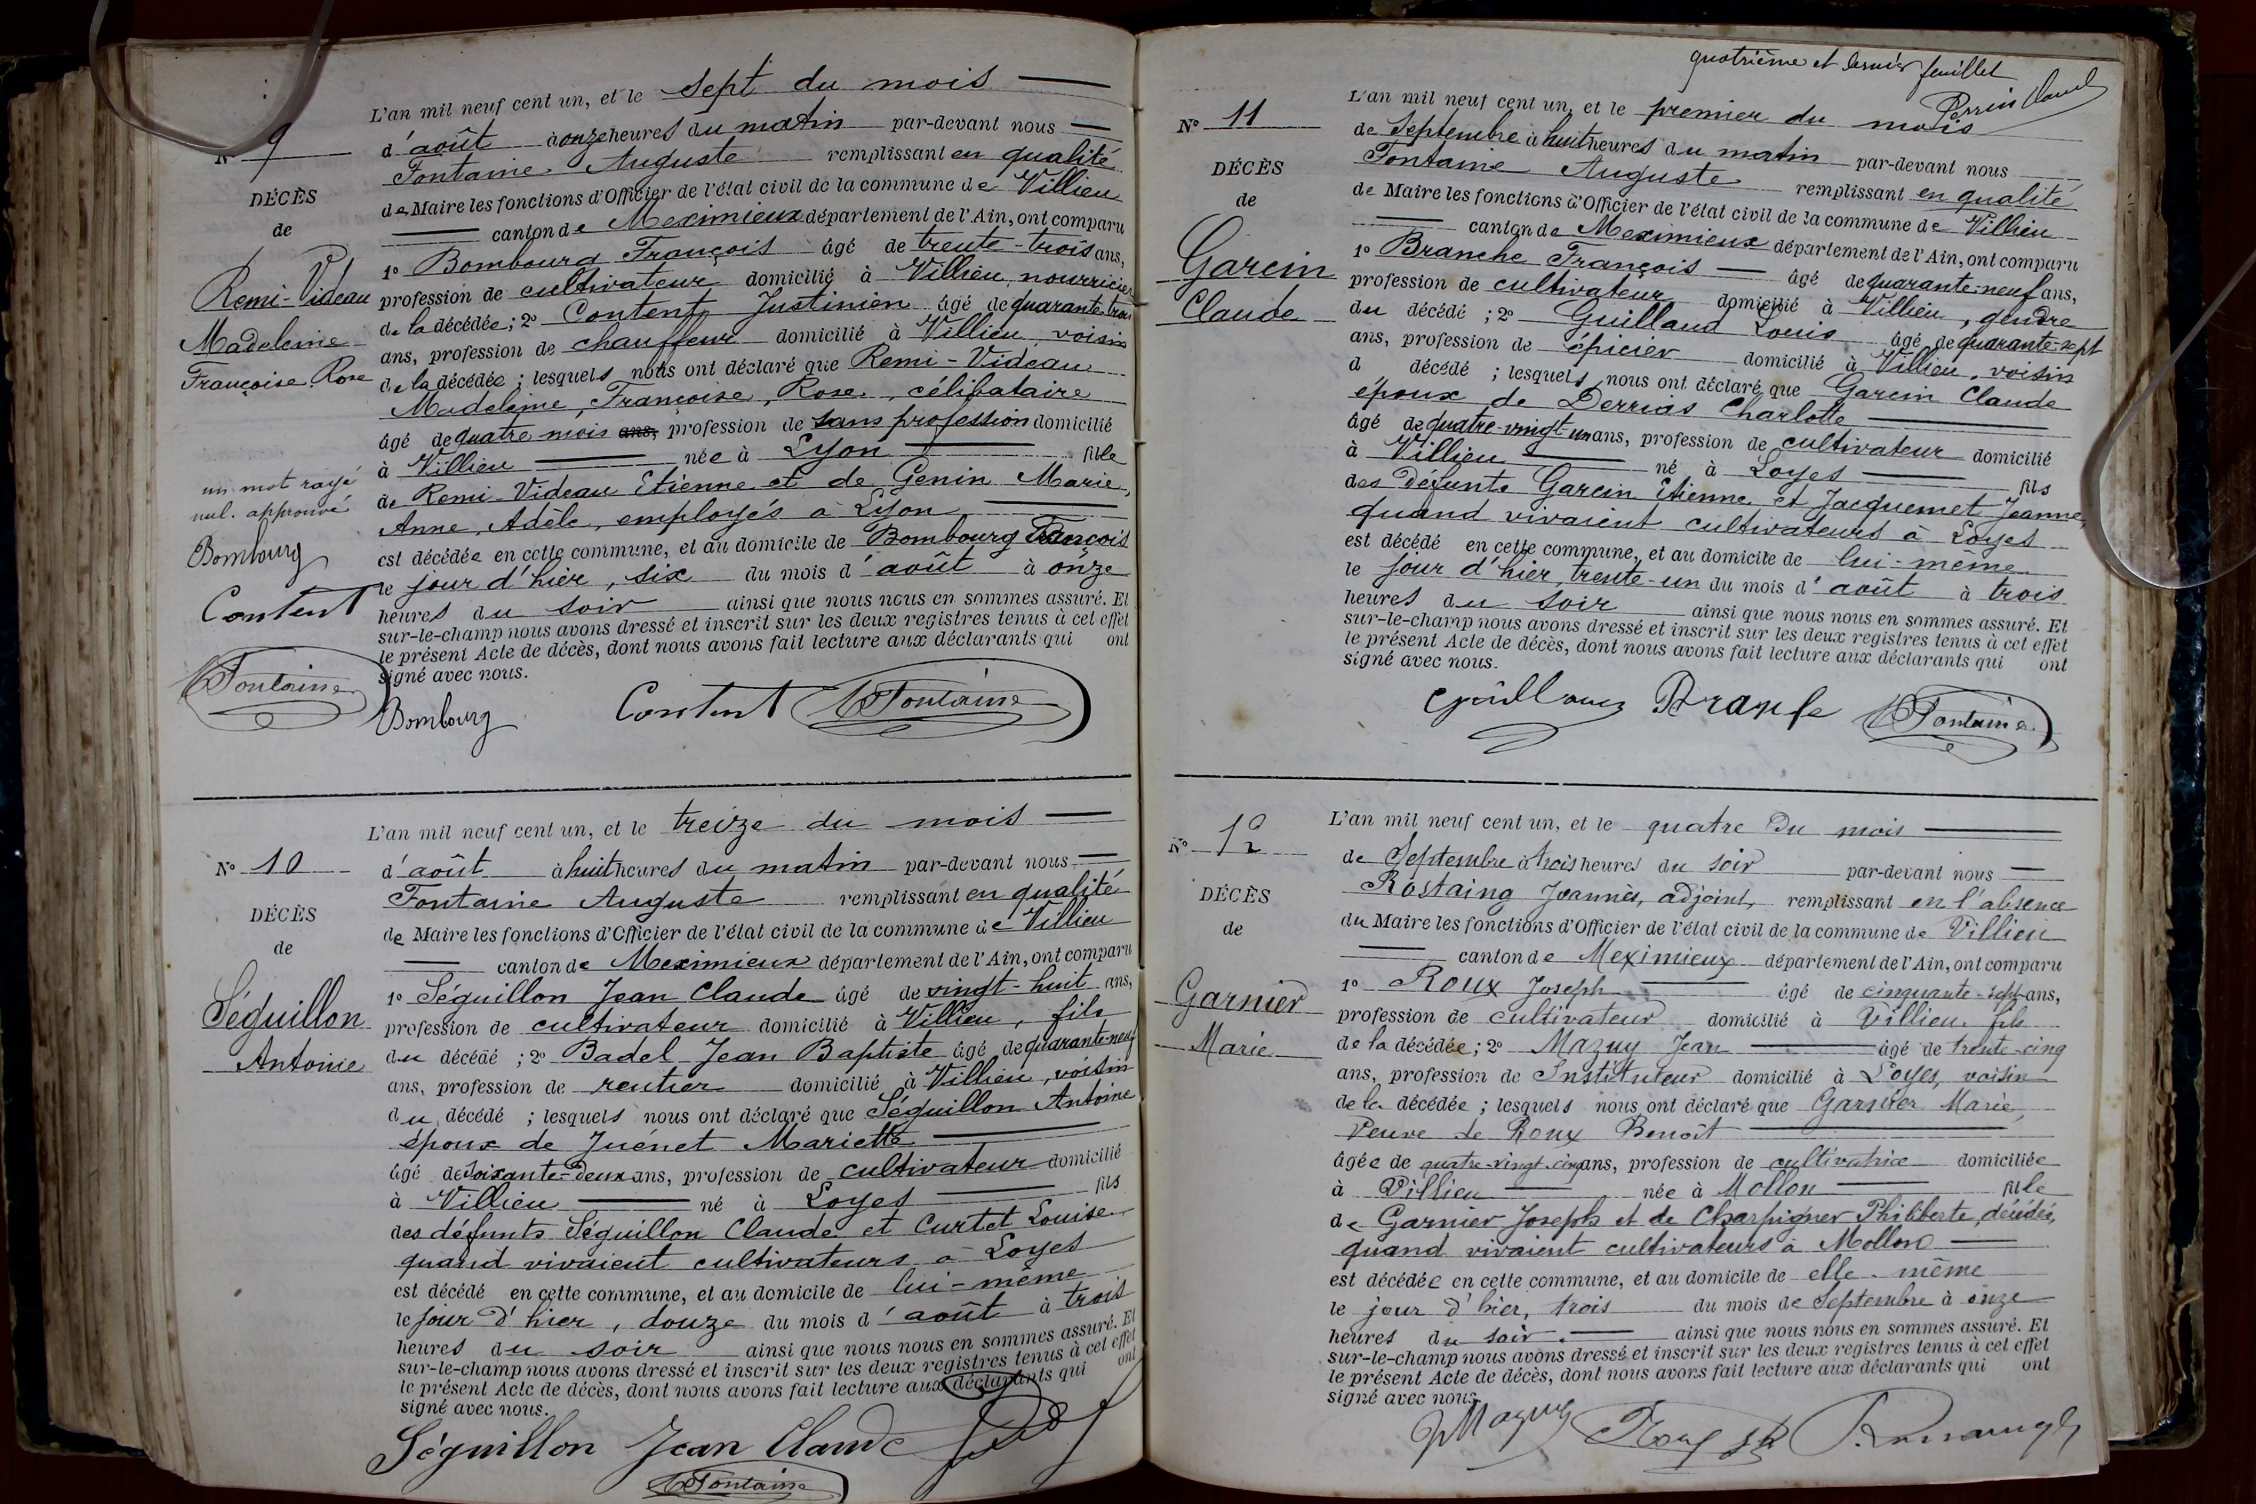 L'an mil neuf cent un, et le sept du mois
N° 9
d'août à onze heures du matin par-devant nous
Fontaine Auguste remplissant en qualité
DÉCÈS
de Maire les fonctions d'Officier de l'état civil de la commune de Villieu
de
canton de Meximieux département de l'Ain, ont comparu
1° Bombourg François âgé de trente-trois ans,
Remi-Videau
profession de cultivateur domicilié à Villieu, nourricier
de la décédée; 2° Content Justinien âgé de quarante trois
Madeleine
ans, profession de chauffeur domicilié à Villieu, voisin
Françoise Rose
de la décédée; lesquels nous ont déclaré que Remi-Videau
Madeleine, Françoise, Rose, célibataire
âgé de quatre mois ans, profession de sans profession domicilié
à Villieu née à Lyon fille
un mot rayé
de Remi-Videau Etienne et de Genin Marie,
nul. approuvé
Anne, Adèle, employés à Lyon
Bombourg
est décédée en cette commune, et au domicile de Bombourg François
le jour d'hier, six du mois d'août à onze
Content
heures du soir ainsi que nous nous en sommes assuré. Et
sur-le-champ nous avons dressé et inscrit sur les deux registres tenus à cet effet
le présent Acte de décès, dont nous avons fait lecture aux déclarants qui ont
Fontaine
signé avec nous.
Bombourg Content Fontaine
L'an mil neuf cent un, et le treize du mois
N° 10
d'août à huit heures du matin par-devant nous
Fontaine Auguste remplissant en qualité
DÉCÈS
de Maire les fonctions d'Officier de l'état civil de la commune de Villieu
de
canton de Meximieux département de l'Ain, ont comparu
1° Séguillon Jean Claude âgé de vingt-huit ans,
Séguillon
profession de cultivateur domicilié à Villieu, fils
Antoine
du décédé; 2° Badel Jean Baptiste âgé de quarante-neuf
ans, profession de rentier domicilié à Villieu, voisin
du décédé; lesquels nous ont déclaré que Séguillon Antoine
époux de Juénet Mariette
âgé de soixante-deux ans, profession de cultivateur domicilié
à Villieu né à Loyes fils
des défunts Séguillon Claude et Curtet Louise
quand vivaient cultivateurs à Loyes
est décédé en cette commune, et au domicile de lui-même
le jour d'hier, douze du mois d'août à trois
heures du soir ainsi que nous nous en sommes assuré. Et
sur-le-champ nous avons dressé et inscrit sur les deux registres tenus à cet effet
le présent Acte de décès, dont nous avons fait lecture aux déclarants qui ont
signé avec nous.
Séguillon Jean Claude
Fontaine
quatrième et dernier feuillet
Perrin
L'an mil neuf cent un, et le premier du mois
N° 11
de Septembre à huit heures du matin par-devant nous
DÉCÈS
Fontaine Auguste remplissant en qualité
de
de Maire les fonctions d'Officier de l'état civil de la commune de Villieu
canton de Meximieux département de l'Ain, ont comparu
Garcin
1° Branche François âgé de quarante-neuf ans,
profession de cultivateur domicilié à Villieu, gendre
Claude
du décédé; 2° Guillaud Louis âgé de quarante-sept
ans, profession de épicier domicilié à Villieu, voisin
d décédé; lesquels nous ont déclaré que Garcin Claude
époux de Charlotte
âgé de quatre-vingt-un ans, profession de cultivateur domicilié
à Villieu né à Loyes fils
des défunts Garcin Etienne et Jacquemet Jeanne,
quand vivaient cultivateurs à Loyes
est décédé en cette commune, et au domicile de lui-même
le jour d'hier, trente-un du mois d'août à trois
heures du soir ainsi que nous nous en sommes assuré. Et
sur-le-champ nous avons dressé et inscrit sur les deux registres tenus à cet effet
le présent Acte de décès, dont nous avons fait lecture aux déclarants qui ont
signé avec nous.
Guillaud Branche Fontaine
L'an mil neuf cent un, et le quatre du mois
N° 12
de Septembre à trois heures du soir par-devant nous
DÉCÈS
Rostaing Joannès, adjoint, remplissant en l'absence
de
du Maire les fonctions d'Officier de l'état civil de la commune de Villieu
canton de Meximieux département de l'Ain, ont comparu
Garnier
1° Roux Joseph âgé de cinquante-sept ans,
profession de cultivateur domicilié à Villieu, fils
Marie
de la décédée; 2° Mazuy Jean âgé de trente-cinq
ans, profession de Instituteur domicilié à Loyes, voisin
de la décédée; lesquels nous ont déclaré que Garnier Marie,
Veuve de Roux Benoît
âgée de quatre-vingt-cinq ans, profession de cultivatrice domiciliée
à Villieu née à Mollon fille
de Garnier Joseph et de Charpigner Philiberte, décédés,
quand vivaient cultivateurs à Mollon
est décédée en cette commune, et au domicile de elle-même
le jour d'hier, trois du mois de Septembre à onze
heures du soir. ainsi que nous nous en sommes assuré. Et
sur-le-champ nous avons dressé et inscrit sur les deux registres tenus à cet effet
le présent Acte de décès, dont nous avons fait lecture aux déclarants qui ont
signé avec nous.
JMazuy Roux